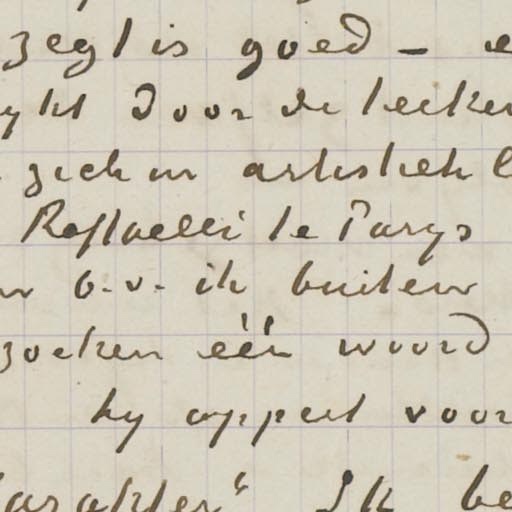 zegt is goed – e
ykt door de teeken
zich in artistiek l
Raffaelli te Parys
b.v. ik buiten
zoeken één woord
hy appeert voor
arakter" Ik be